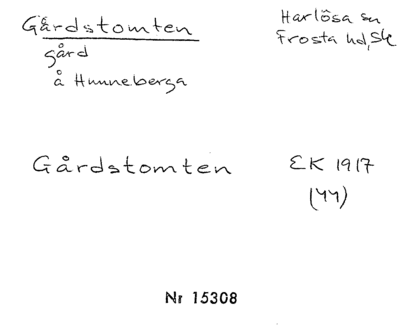 Gårdstomten
gård
å Hunneberga
Harlösa sn
Frosta hd, Sk
Gårdstomten
EK 1917
(44)
Nr 15308